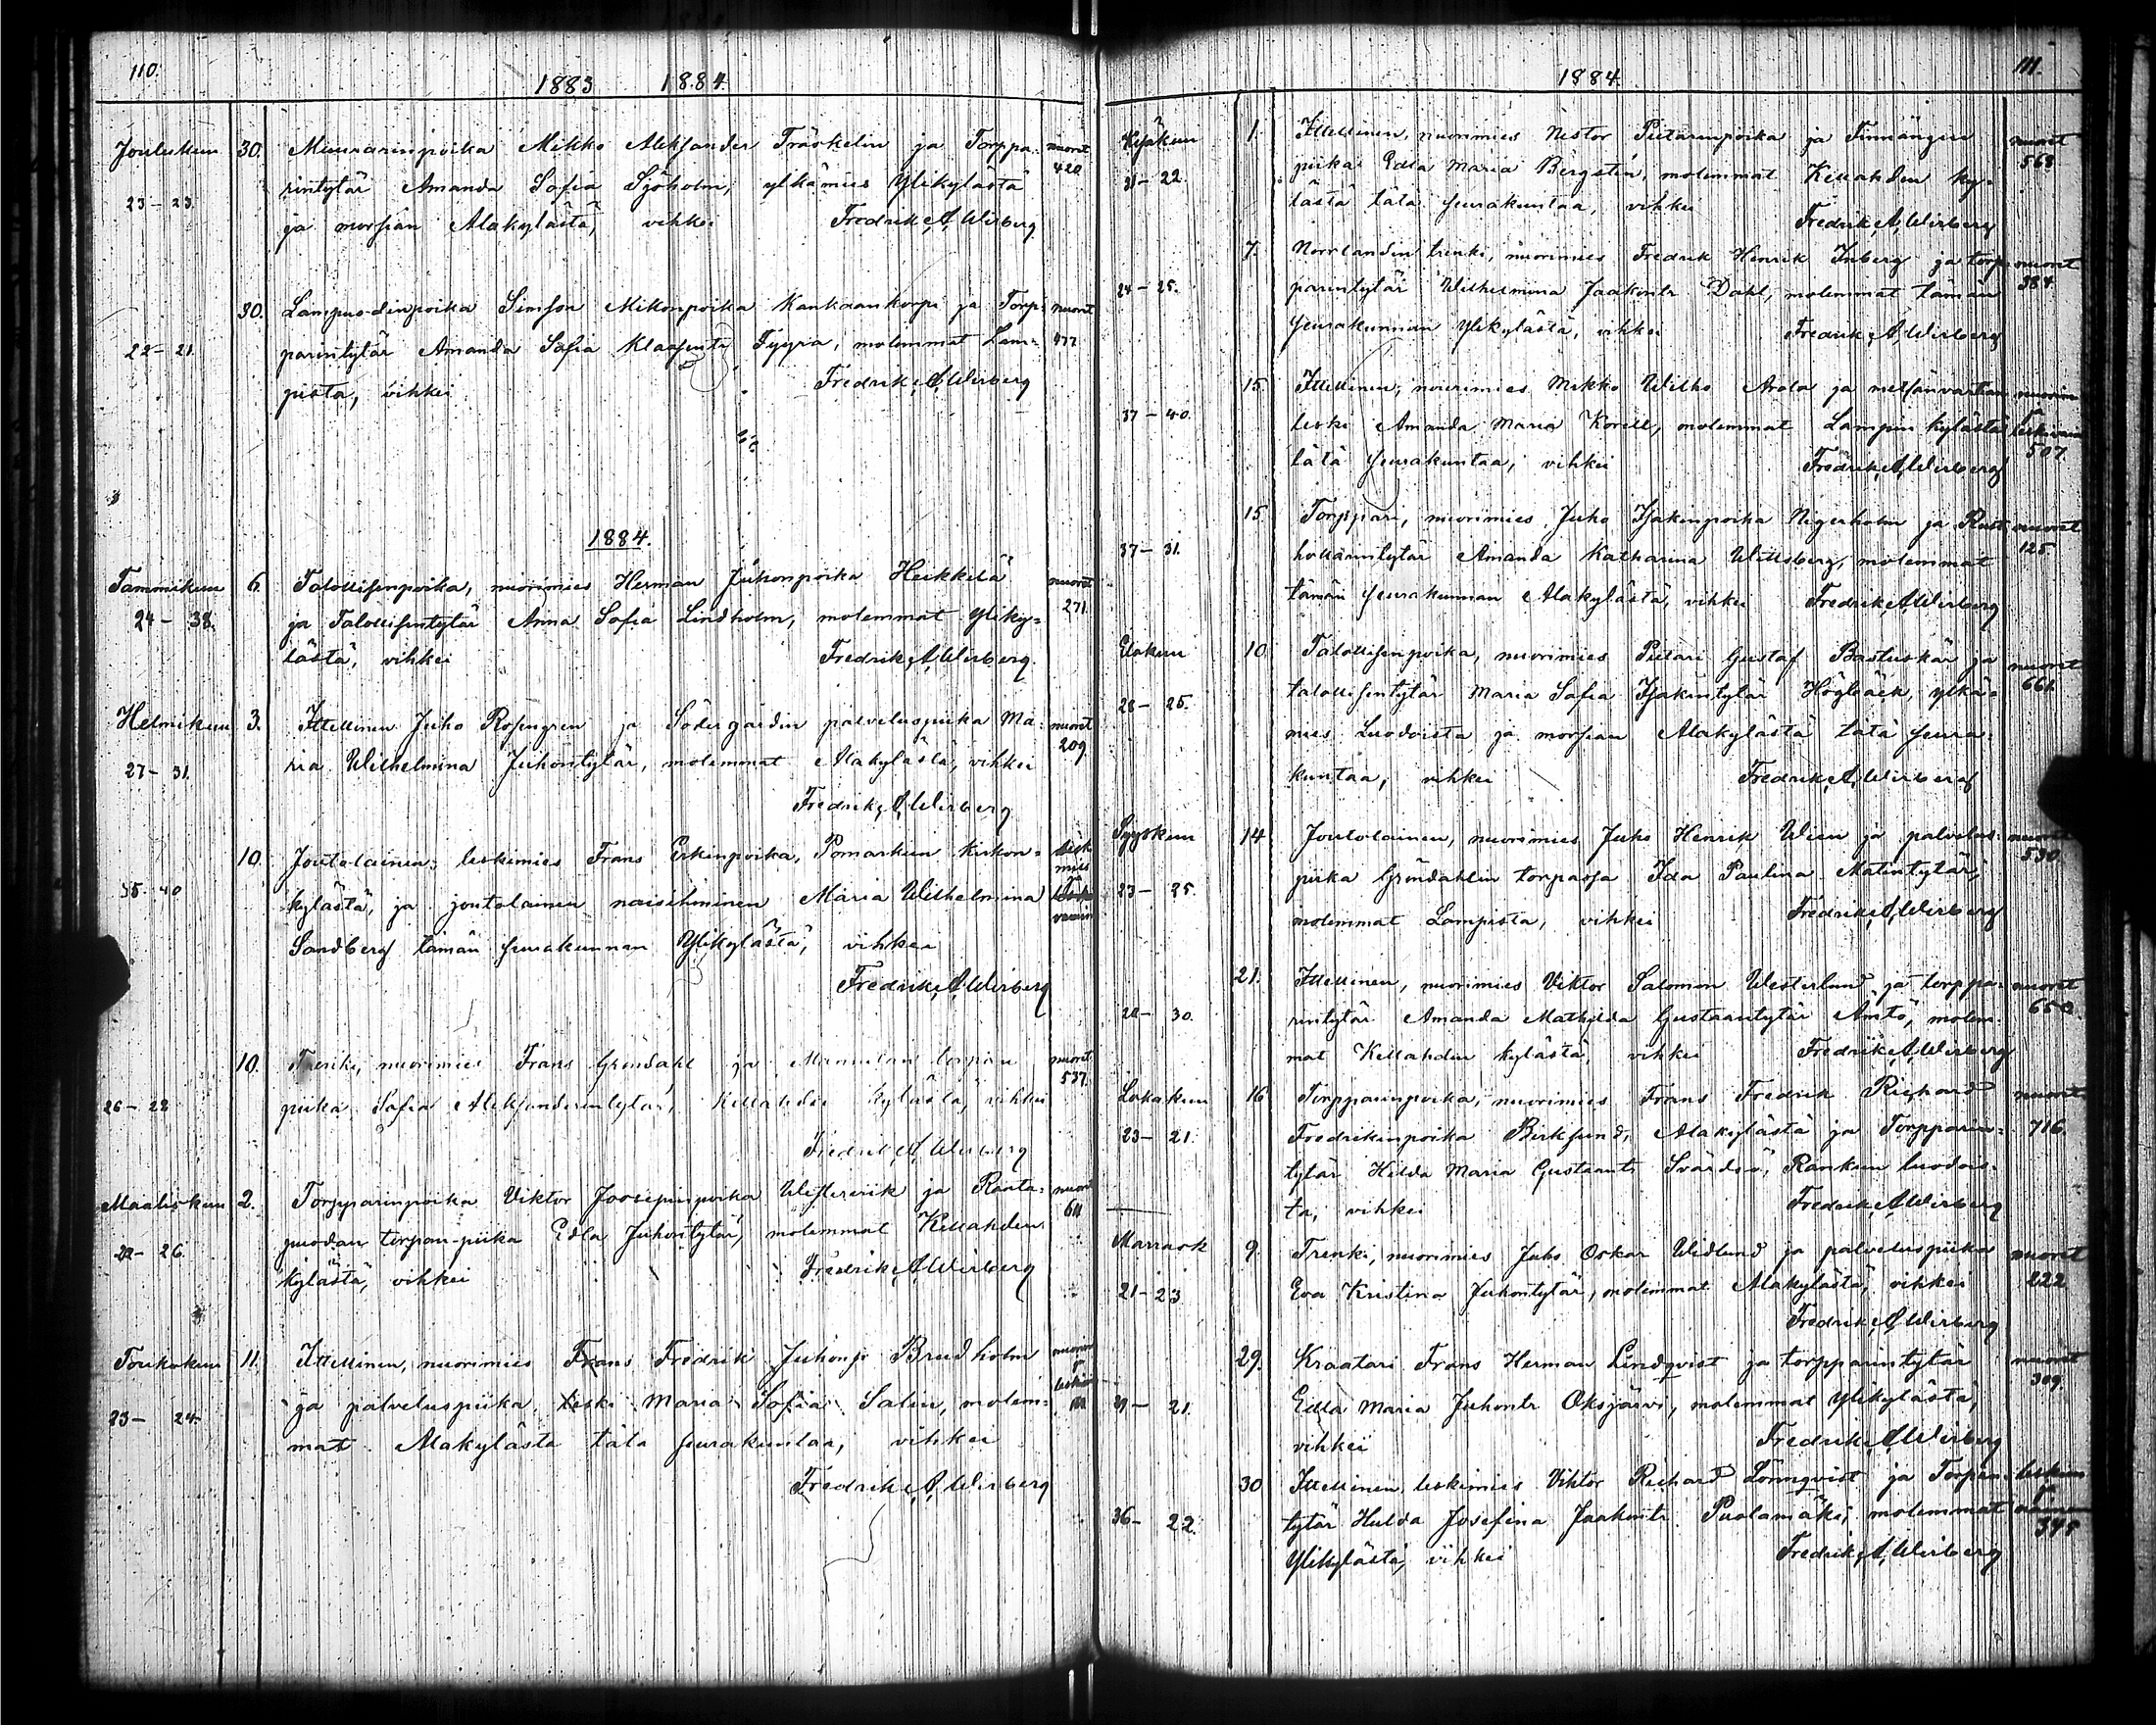 110.
1883 1884.
Joulukuu 30. Muurarinpoika Mikko Aleksander Träskelin ja Torppa- nuoret
23-23. rintytär Amanda Sofia Sjöholm, ylkämies Ylikylästä 420
ja morsian Alakylästä, vihkei Fredrik A. Wirberg
30. Lampuodinpoika Simson Mikonpoika Kankaankorpi ja Torp- nuoret
22-21. parintytär Amanda Sofia Klaafintr Tyyra, molemmat Lam- 477
pista, vihkei Fredrik A. Wirberg
1884.
Tammikuu 6. Talollisenpoika, nuorimies Herman Juhonpoika Heikkilä nuoret
24-38. ja Talollisentytär Anna Sofia Lindholm, molemmat Yliky- 271.
lästä, vihkei Fredrik A. Wirberg.
Helmikuu 3. Itellinen Juho Rosengren ja Södergårdin palveluspiika Ma- nuoret
27-31. ria Wilhelmina Juhontytär, molemmat Alakylästä, vihkei 209
Fredrik A. Wirberg
10. Joutolainen, leskimies Frans Erkinpoika, Pomarkun Kirkon- leski
mies
35-40 kylästä, ja joutolainen naisihminen Maria Wilhelmina
Sandberg tämän seurakunnan Ylikylästä, vihkei
Fredrik A. Wirberg
10. Trenki, nuorimies Frans Gröndahl ja Mannilan torpan nuoret
26-28 piika Sofia Aleksanderintytär, Kellahden kylästä, vihkei 537.
Fredrik A. Wirberg
Maaliskuu 2. Torpparinpoika Viktor Joosepinpoika Westervik ja Raata- nuoret
22-26. puodan torpan-piika Edla Juhontytär, molemmat Kellahden 611
kylästä, vihkei Fredrik A. Wirberg
Toukokuu 11. Itellinen, nuorimies Frans Fredrik Juhonp. Brudholm
23-24 ja palveluspiika, leski Maria Sofia Salin, molem-
mat Alakylästä tätä seurakuntaa, vihkei
Fredrik A. Wirberg
1884 111.
Kesäkuu 1. Itellinen, nuorimies Nestor Pietarinpoika ja Finnängin nuoret
31-22. piika Edla Maria Bergstén, molemmat Kellahden ky- 568
lästä tätä seurakuntaa, vihkei Fredrik A. Wirberg
7. Norrlandin trenki, nuorimies Fredrik Henrik Inberg ja torp- nuoret
24-25. parintytär Wilhelmina Jaakontr Dahl, molemmat tämän 384.
seurakunnan Ylikylästä, vihkei Fredrik A. Wirberg
15. Itellinen, nuorimies Mikko Wilho Arola ja metsänvartian
37-40. leski Amanda Maria Korell, molemmat Lampin kylästä
tätä seurakuntaa, vihkei Fredrik A. Wirberg 507
15 Torppari, nuorimies Juho Isakinpoika Nigerholm ja Rust- nuoret
37-31. hollarintytär Amanda Katharina Wittsberg, molemmat 125.
tämän seurakunnan Alakylästä, vihkei Fredrik A. Wirberg
Elokuu 10 Talollisenpoika, nuorimies Pietari Gustaf Bastuskär ja nuoret
28-25. talollisentytär Maria Sofia Isakintytär Högback, ylkä- 661.
mies Luodoista ja morsian Alakylästä tätä seura-
kuntaa, vihkei Fredrik A. Wirberg
Syyskuu 14 Joutolainen, nuorimies Juho Henrik Wien ja palvelus- nuoret
23-25. piika Gröndahlin torpassa Ida Paulina Matintytär, 530
molemmat Lampista, vihkei Fredrik A. Wirberg
21. Itellinen, nuorimies Viktor Salomon Westerlund ja torppa- nuoret
28-30. rintytär Amanda Mathilda Gustaantytär Amtö, molem- 650.
mat Kellahden kylästä, vihkei Fredrik A. Wirberg
Lokakuu 16 Torpparinpoika, nuorimies Frans Fredrik Richard nuoret
23-21. Fredrikinpoika Birklund, Alakylästä ja Torpparin- 716.
tytär Hilda Maria Gustaantr Svärdsö, Rankun luodois-
ta, vihkei Fredrik A. Wirberg
Marrask 9. Trenki, nuorimies Juho Oskar Widlund ja palveluspiika nuoret
21-23 Eva Kristina Juhontytär, molemmat Alakylästä, vihkei 222
Fredrik A. Wirberg
29. Kraatari Frans Herman Lindqvist ja torpparintytär nuoret
21. Edla Maria Juhontr Oksjärvi, molemmat Ylikylästä, 309.
vihkei Fredrik A. Wirberg
30 Itellinen, leskimies Viktor Richard Lönnqvist ja Torparin-
36-22. tytär Hulda Josefina Jaakontr Puolamäki, molemmat
Ylikylästä, vihkei Fredrik A. Wirberg